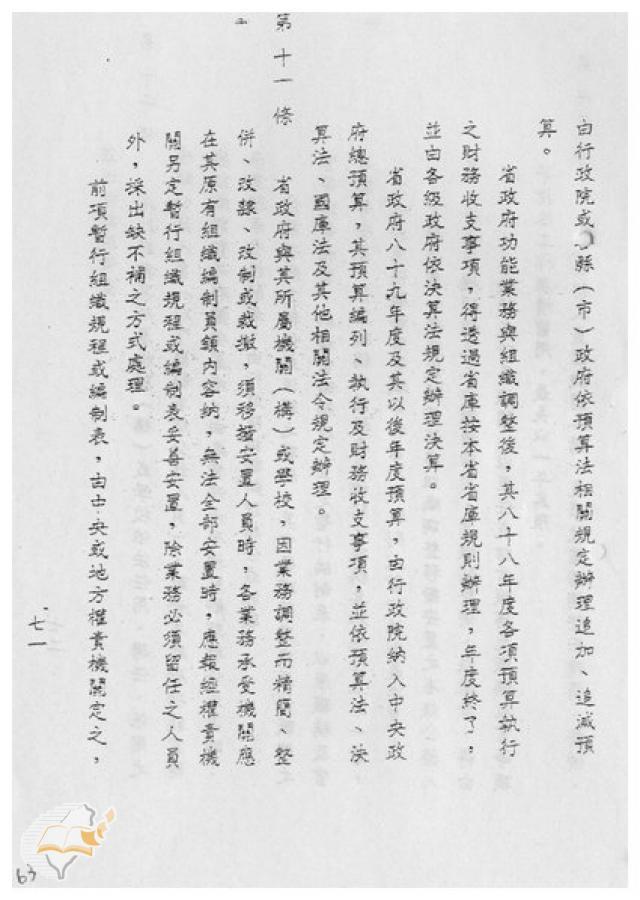 由行政院或縣(市)政府依預算法相關規定辦理追加、追減預
算。
省政府功能業務與組織調整後，其八十八年度各項預算執行
之財務收支事項，得透過省庫按本省省庫規則辦理，年度終了，
並由各級政府依決算法規定辦理決算。
省政府八十九年度及其以後年度預算，由行政院納入中央政
府總預算，其預算編列、執行及財務收支事項，並依預算法、決
算法、國庫法及其他相關法令規定辦理。
第十一條　省政府與其所屬機關(構)或學校，因業務調整而精簡、整
併、改隸、改制或裁撤，須移撥安置人員時，各業務承受機關應
在其原有組織編制員額內容納，無法全部安置時，應報經權責機
關另定暫行組織規程或編制表妥善安置，除業務必須留任之人員
外，採出缺不補之方式處理。
前項暫行組織規程或編制表，由中央或地方權責機關定之，
七一
63